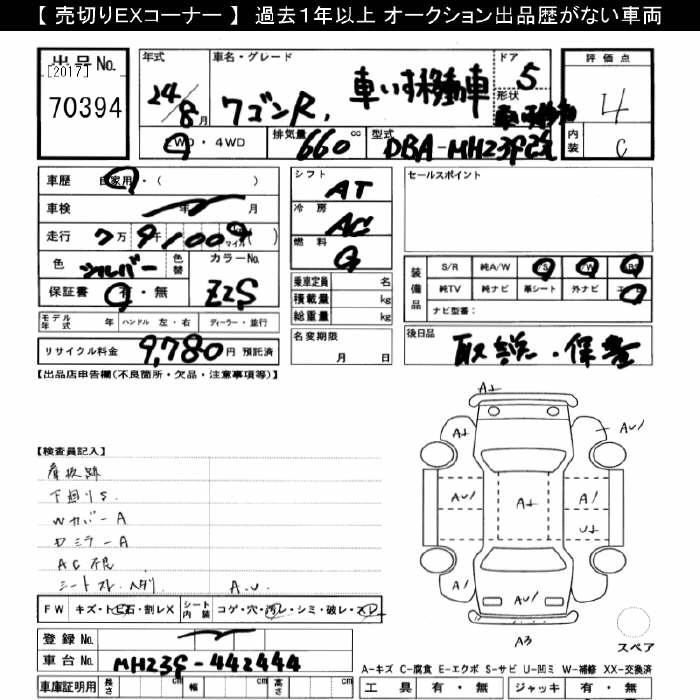 【 売切りEXコーナー 】 過去1年以上 オークション出品歴がない車両
出品No.
[2017]
70394
年式
24/8月
車名・グレード
ワゴンR, 車いす移動車
ドア
5
形状
評価点
4
内装
C
2WD・4WD
排気量
660cc
型式
DBA-MH23S改
車歴
自家用・( )
車検
年 月
走行
7万9千100
マイル( )
色
シルバー
色替
カラーNo.
Z2S
保証書
有・無
モデル年式 年
ハンドル 左・右
ディーラー・並行
リサイクル料金
9,780円 預託済
シフト
AT
冷房
AC
燃料
G
乗車定員 名
積載量 kg
総重量 kg
名変期限
月 日
セールスポイント
装備品
S/R
純A/W
P/S
P/W
ABS
純TV
純ナビ
単シート
外ナビ
ナビ型番:
後日品
取説・保書
【出品店申告欄(不良箇所・欠品・注意事項等)】
【検査員記入】
看板跡
下廻りS.
Wカバー A
Dミラー A
AC不良
シートスレ・ヘタリ
A.U.
FW
キズ・トビ石・割レX
シート内装
コゲ・穴・汚レ・シミ・破レ・スレ
登録No.
車台No.
MH23S-442444
車庫証明用
長さ cm
幅 cm
高さ cm
A+
A+
AU1
AU1
A+
A1
U+
A1
AU1
A3
スペア
A-キズ C-腐食 E-エクボ S-サビ U-凹ミ W-補修 XX-交換済
工具
有・無
ジャッキ
有・無